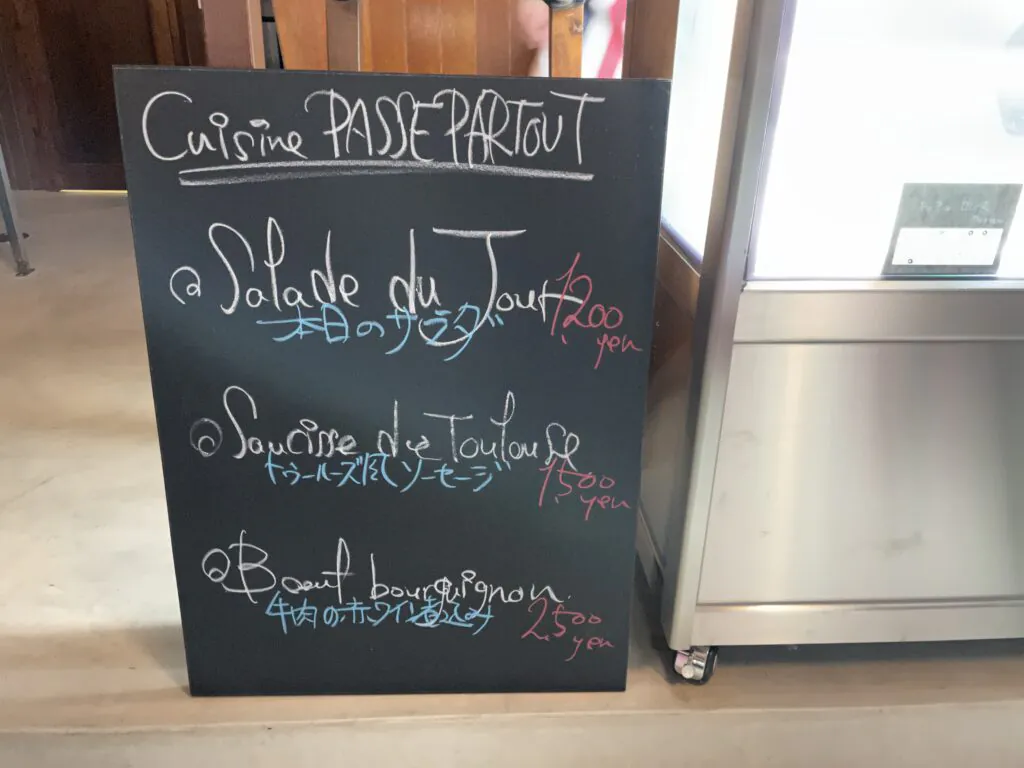 Cuisine PASSE PARTOUT
Salade du Jour
本日のサラダ
1200
yen
Saucisse de Toulouse
トゥールーズ風ソーセージ
1,500
yen
Boeuf bourguignon
牛肉の赤ワイン煮込み
2,500
yen